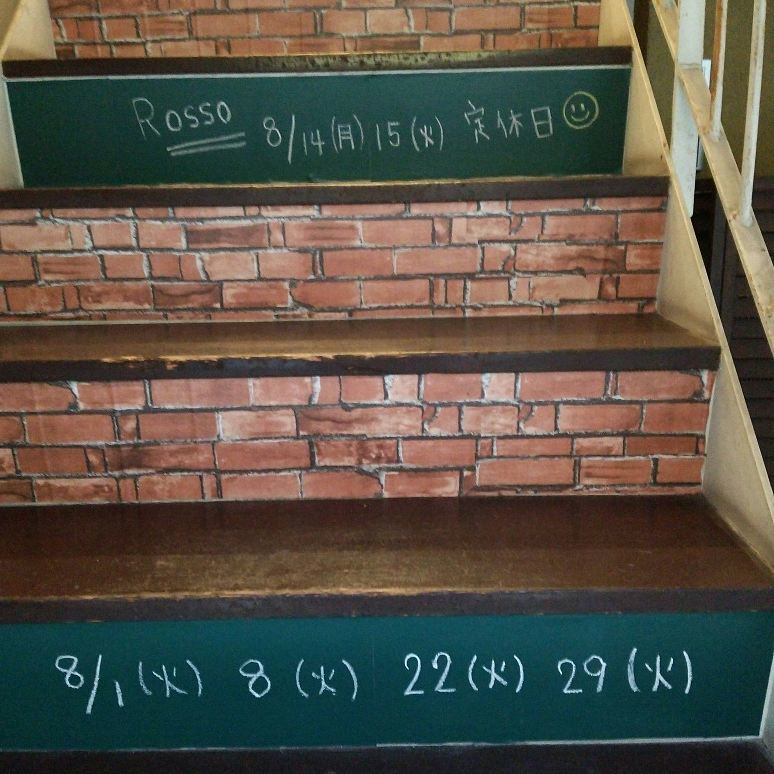 Rosso 8/14(月) 15(火) 定休日
8/1(火) 8(火) 22(火) 29(火)